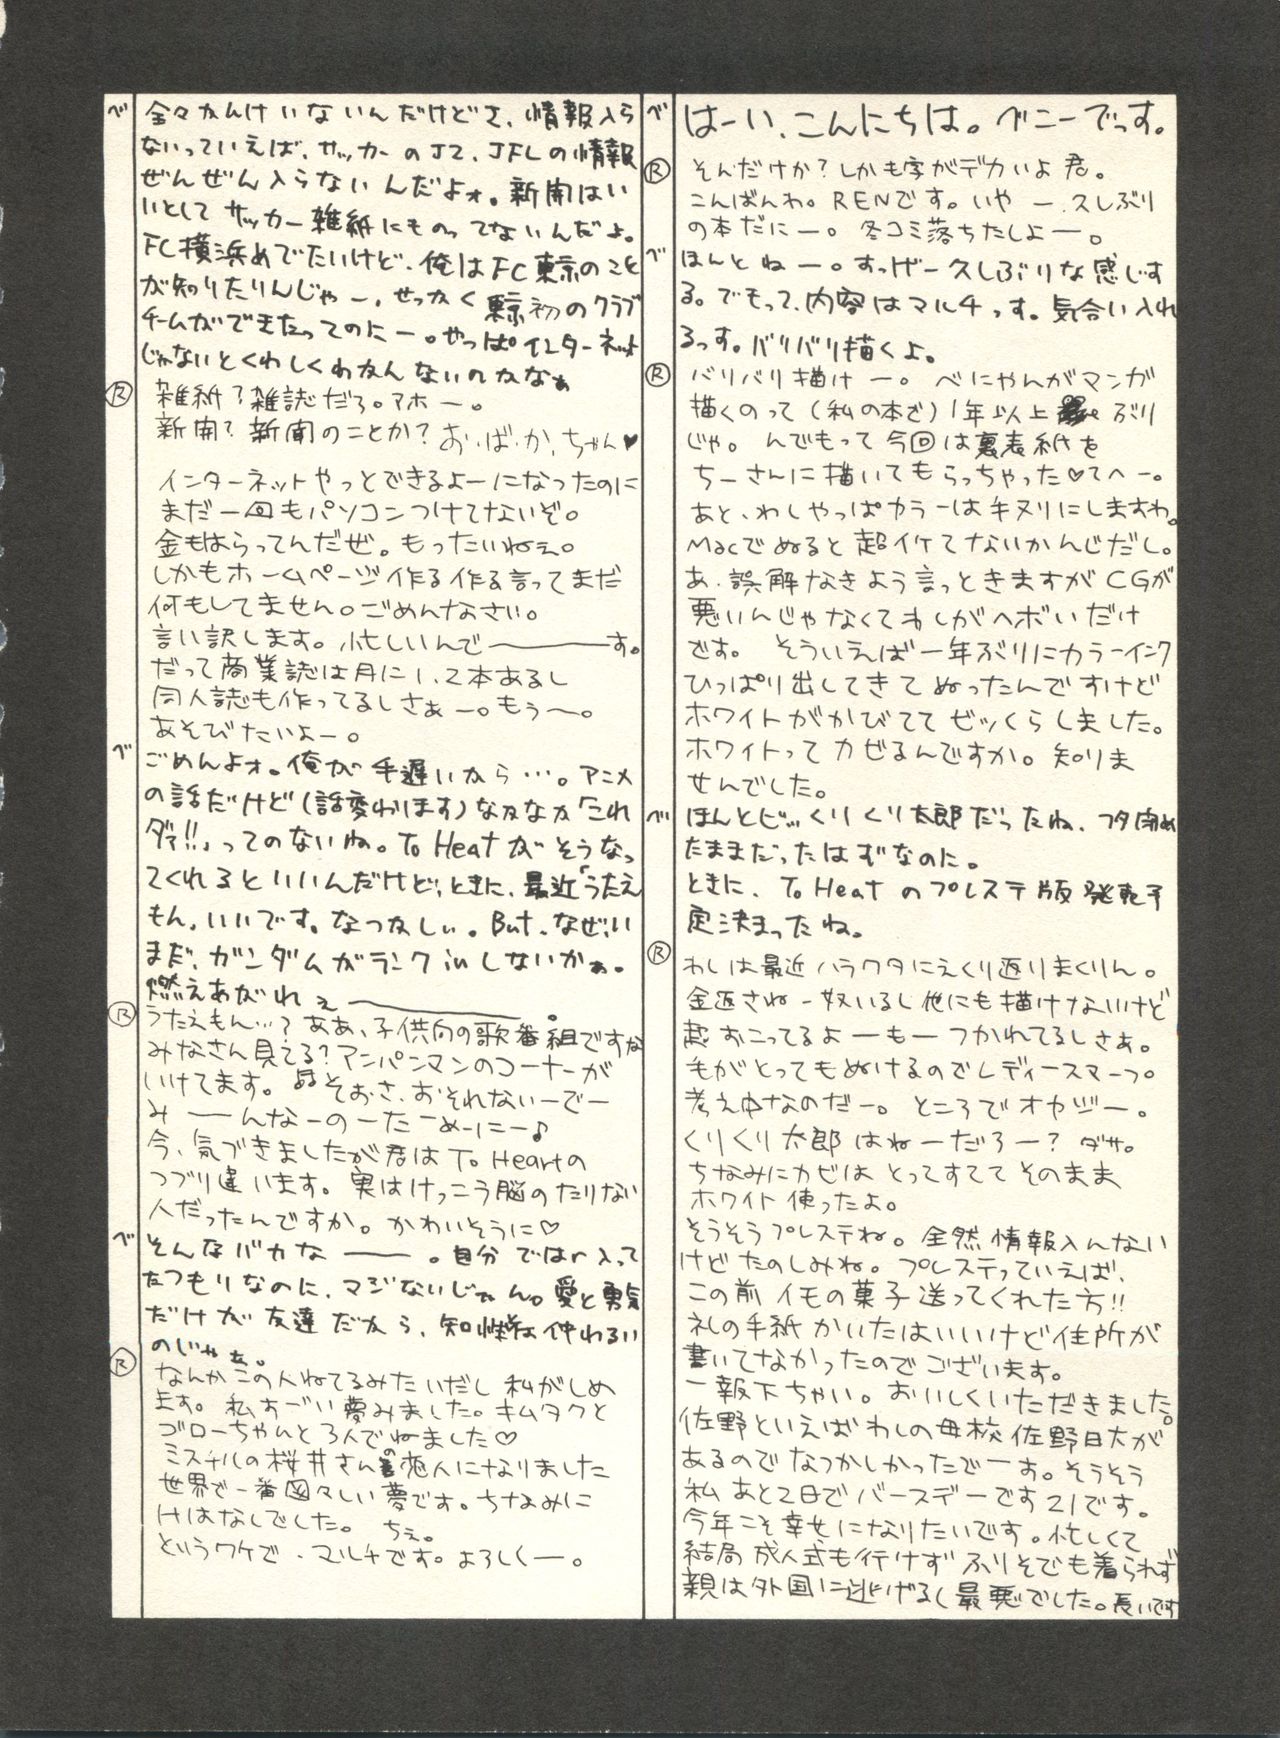 べ はーい、こんにちは。べニーでっす。
Ⓡ そんだけか?しかも字がデカいよ君。
こんばんわ。RENです。いやー、久しぶり
の本だにー。冬コミ落ちたしよー。
べ ほんとねー。すっげー久しぶりな感じす
る。でもって、内容はマルチっす。気合い入れ
るっす。バリバリ描くよ。
Ⓡ バリバリ描けー。べにゃんがマンガ
描くのって(私の本で)1年以上ぶり
じゃ。んでもって今回は裏表紙を
ちーさんに描いてもらっちゃった♡てへー。
あと、わしやっぱカラーは手ヌリにしますわ。
Macでぬると超イケてないかんじだし。
あ、誤解なきよう言っときますがCGが
悪いんじゃなくてわしがヘボいだけ
です。そういえば一年ぶりにカラーインク
ひっぱり出してきてぬったんですけど
ホワイトがかびててビックらしました。
ホワイトってカビるんですか。知りま
せんでした。
べ ほんとビックリくり太郎だったね、フタ閉め
たままだったはずなのに。
ときに、To Heatのプレステ版発売予
定決まったね。
Ⓡ わしは最近ハラワタにえくり返りまくりん。
金返さねー奴いるし他にも描けないけど
超おこってるよーもーつかれてるしさぁ。
毛がとってもぬけるのでレディースマープ。
考え中なのだー。ところでオヤジー。
くりくり太郎はねーだろー?ダサ。
ちなみにカビはとってすててそのまま
ホワイト使ったよ。
そうそうプレステね。全然情報入んない
けどたのしみね。プレステっていえば、
この前イモの菓子送ってくれた方!!
礼の手紙かいたはいいけど住所が
書いてなかったのでございます。
一報下ちゃい。おいしくいただきました。
佐野といえばわしの母校佐野日大が
あるのでなつかしかったでーす。そうそう
私あと2日でバースデーです21です。
今年こそ幸せになりたいです。忙しくて
結局成人式も行けずふりそでも着られず
親は外国に逃げるし最悪でした。長いです
べ 全々かんけいないんだけどさ、情報入ら
ないっていえば、サッカーのJ2、JFLの情報
ぜんぜん入らないんだよォ。新開はい
いとしてサッカー雑紙にものってないんだよ。
FC横浜めでたいけど、俺はFC東京のこと
が知りたりんじゃー、せっかく東京初のクラブ
チームができたってのにー。やっぱインターネット
じゃないとくわしくわかんないのかなぁ
Ⓡ 雑紙?雑誌だろ。アホー。
新開?新聞のことか?お・ば・か・ちゃん♥
インターネットやっとできるよーになったのに
まだ一回もパソコンつけてないぞ。
金もはらってんだぜ。もったいねぇ。
しかもホームページ作る作る言ってまだ
何もしてません。ごめんなさい。
言い訳します。忙しいんで――――す。
だって商業誌は月に1、2本あるし
同人誌も作ってるしさぁー。もう〜。
あそびたいよー。
べ ごめんよォ。俺が手遅いから…。アニメ
の話だけど(話変わります)なかなか「これ
ダァ!!」ってのないね。To Heatがそうなっ
てくれるといいんだけど、ときに、最近「うたえ
もん」いいです。なつかしい。But、なぜ、い
まだ、ガンダムがランクinしないかぁ。
燃えあがれぇ――――。
Ⓡ うたえもん…?ああ、子供向の歌番組ですな
みなさん見てる?アンパンマンのコーナーが
いけてます。♫そぉ、さ、おそれないーでー
みーーんなーのーたーめーにー♪
今、気づきましたが君はTo Heartの
つづり違います。実はけっこう脳のたりない
人だったんですか。かわいそうに♡
べ そんなバカなー―。自分ではr入って
たつもりなのに、マジないじゃん。愛と勇気
だけが友達だから、知性とは仲わるい
のじゃぁ。
Ⓡ なんかこの人ねてるみたいだし私がしめ
ます。私すごい夢みました。キムタクと
ゴローちゃんと3人でねました♡
ミスチルの桜井さんの恋人になりました
世界で一番図々しい夢です。ちなみに
Hはなしでした。ちぇ。
というワケで、マルチです。よろしくー。